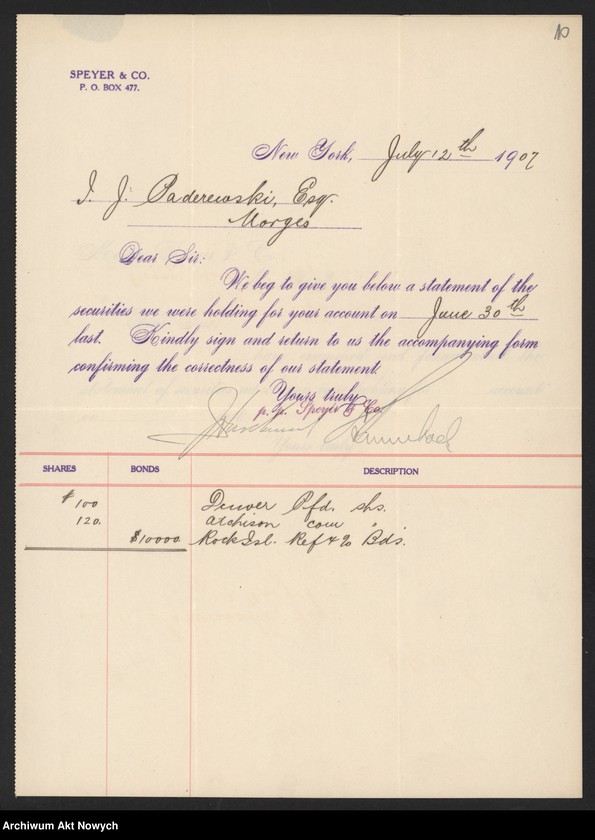 10
SPEYER & CO.
P. O. BOX 477.
New York, July 12th 1907
I. J. Paderewski, Esq.
Morges
Dear Sir:
We beg to give you below a statement of the
securities we were holding for your account on June 30th
last. Kindly sign and return to us the accompanying form
confirming the correctness of our statement.
Yours truly
p. p. Speyer & Co.
SHARES BONDS DESCRIPTION
$100 Denver Pfd. shs.
120. Atchison com "
$10000 Rock Isl. Ref 4% Bds.
Archiwum Akt Nowych